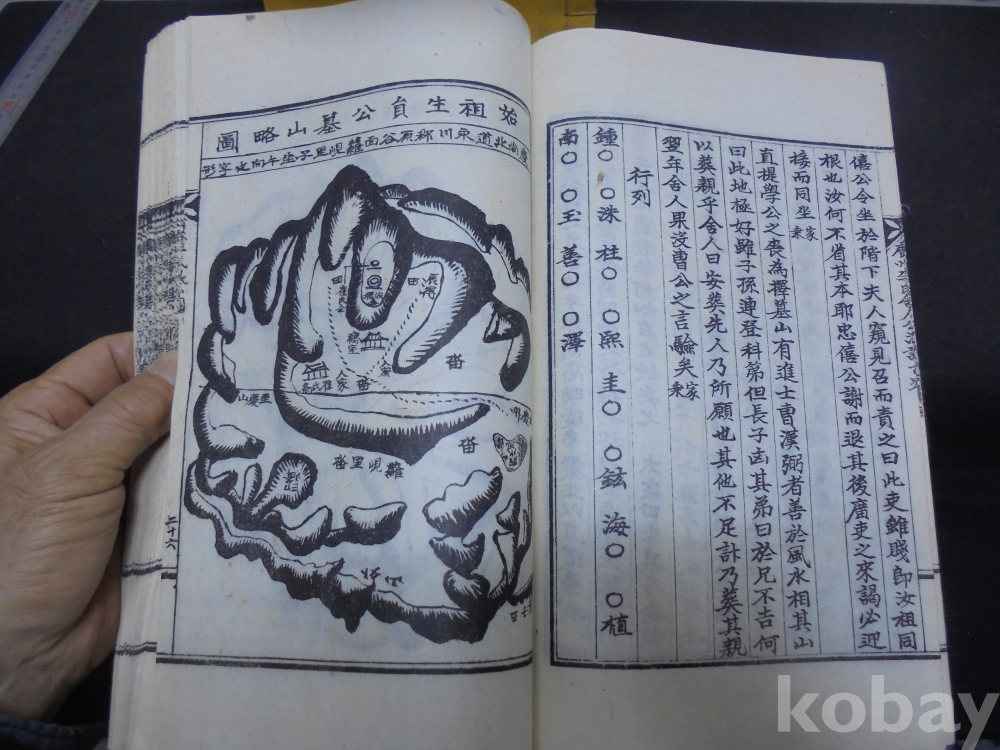 僖公令坐於階下夫人窺見召而責之曰此吏雖賤即汝祖同
根也汝何不省其本耶忠僖公謝而退其後廣吏之來謁必迎
接而同坐家乘
直提學公之喪為擇墓山有進士曹漢弼者善於風水相其山
曰此地極好雖子孫連登科第但長子凶其弟曰於兄不吉何
以葬親乎舍人曰安葬先人乃所願也其他不足計乃葬其親
翌年舍人果沒曹公之言驗矣家乘
行列
鍾○ ○洙 柱○ ○熙 圭○ ○鉉 海○ ○植
南○ ○玉 善○ ○澤
始祖生員公墓山略圖
慶尚北道 川 谷面蘿峴里子坐午向 字形
畓
田
田
齋室
人家
人家
畓
畓
蘿峴里畓
外山
二十六
kobay